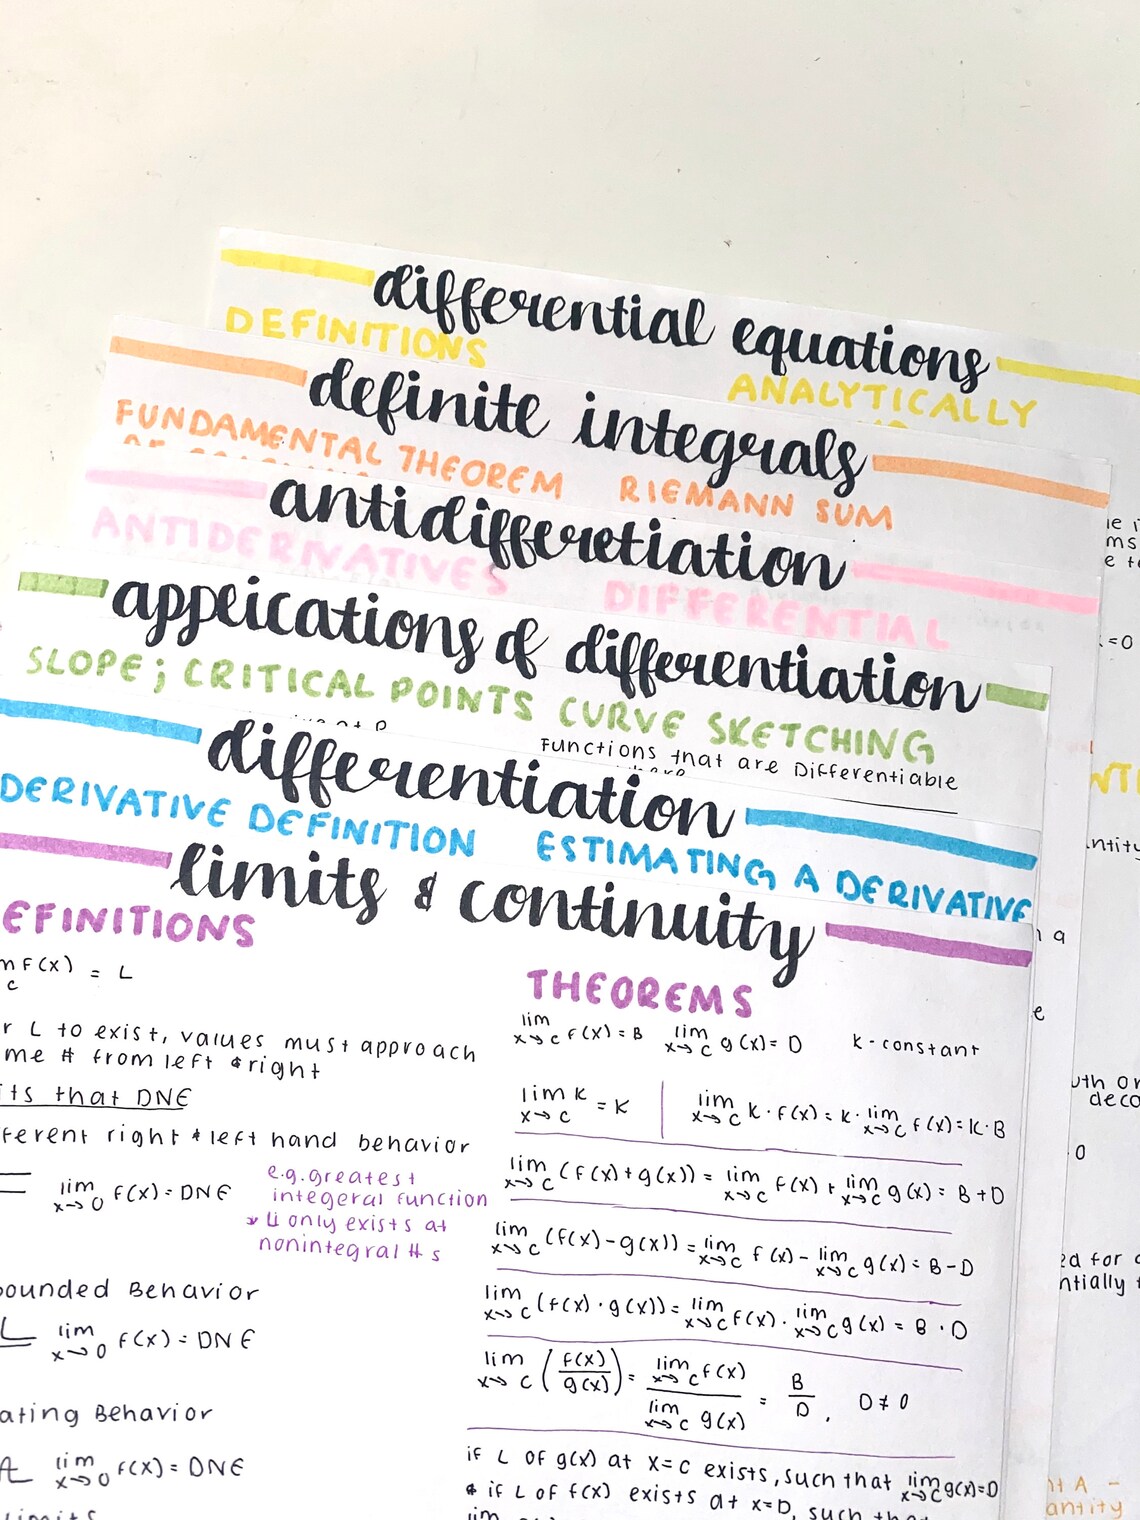 differential equations
DEFINITIONS
ANALYTICALLY
definite integrals
FUNDAMENTAL THEOREM
RIEMANN SUM
antidifferetiation
ANTIDERIVATIVES
DIFFERENTIAL
appeications of differentiation
SLOPE; CRITICAL POINTS
CURVE SKETCHING
Functions that are Differentiable
differentiation
DERIVATIVE DEFINITION
ESTIMATING A DERIVATIVE
limits & continuity
EFINITIONS
m f(x) = L
c
r L to exist, values must approach
me # from left & right
its that DNE
ferent right & left hand behavior
lim f(x) = DNE
x→0
e.g. greatest
integeral function
↳ Li only exists at
nonintegral #s
ounded Behavior
lim f(x) = DNE
x→0
ating Behavior
lim f(x) = DNE
x→0
THEOREMS
lim f(x) = B lim g(x) = D K - constant
x→c x→c
lim K = K lim K · f(x) = K · lim f(x) = K · B
x→c x→c x→c
lim (f(x) + g(x)) = lim f(x) + lim g(x) = B + D
x→c x→c x→c
lim (f(x) - g(x)) = lim f(x) - lim g(x) = B - D
x→c x→c x→c
lim (f(x) · g(x)) = lim f(x) · lim g(x) = B · D
x→c x→c x→c
lim (f(x)/g(x)) = lim f(x) / lim g(x) = B/D, D ≠ 0
x→c x→c x→c
if L of g(x) at x=c exists, such that lim g(x)=D
x→c
& if L of f(x) exists at x=D, such that
=0
ntity
a
e
uth or
deco
0
ed for
ntially
nt A -
antity